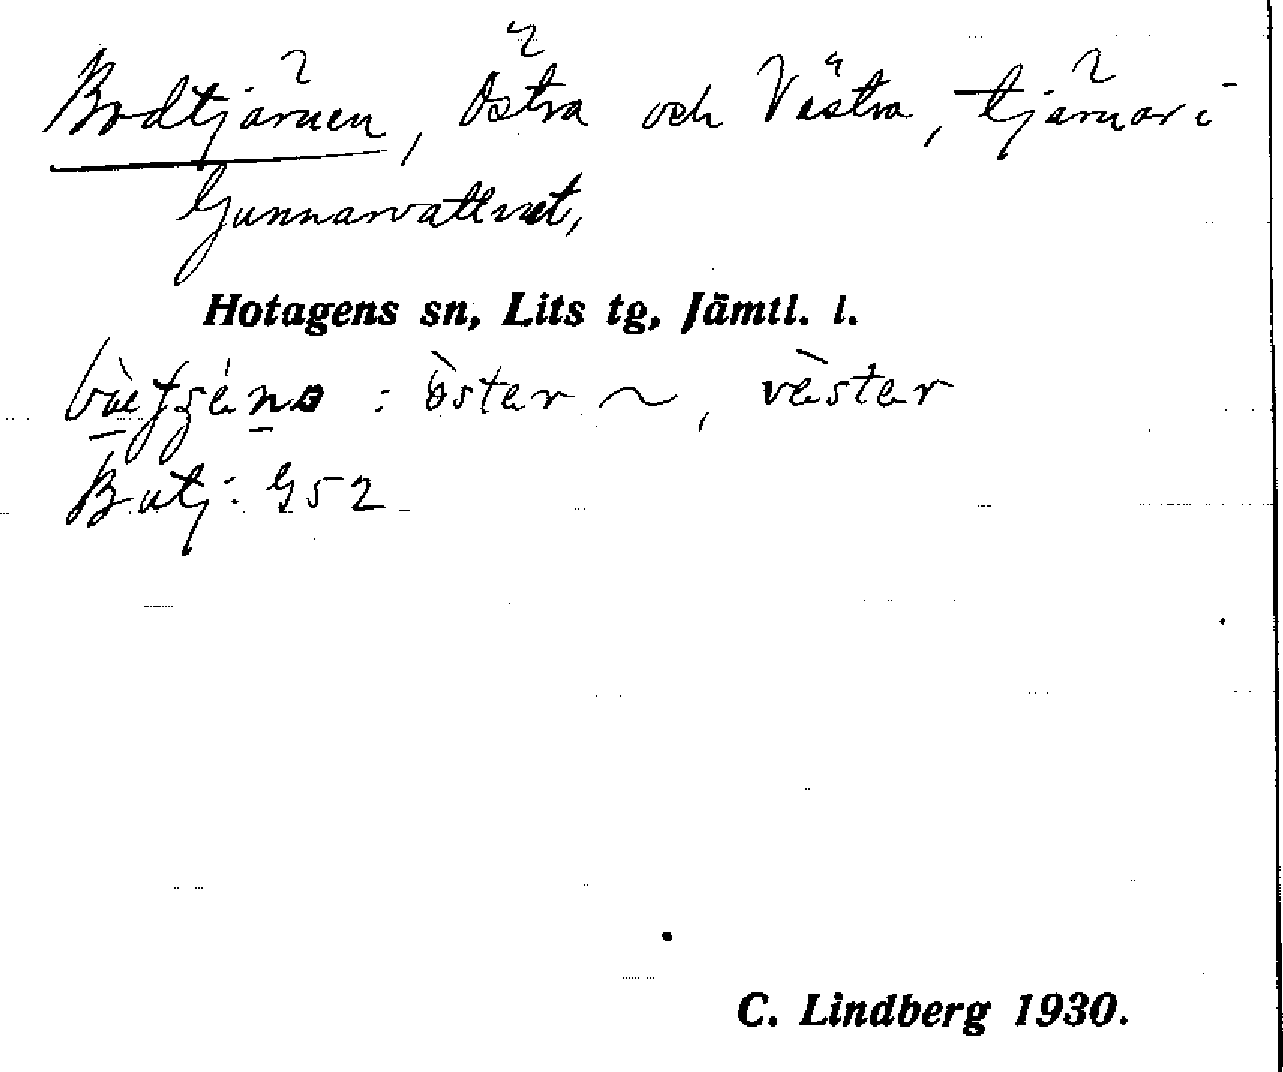 Bodtjärnen, Östra och Västra, tjärnar i
Gunnarvattnet,
Hotagens sn, Lits tg, Jämtl. l.
: öster ~, vèster
Butj: G52
C. Lindberg 1930.